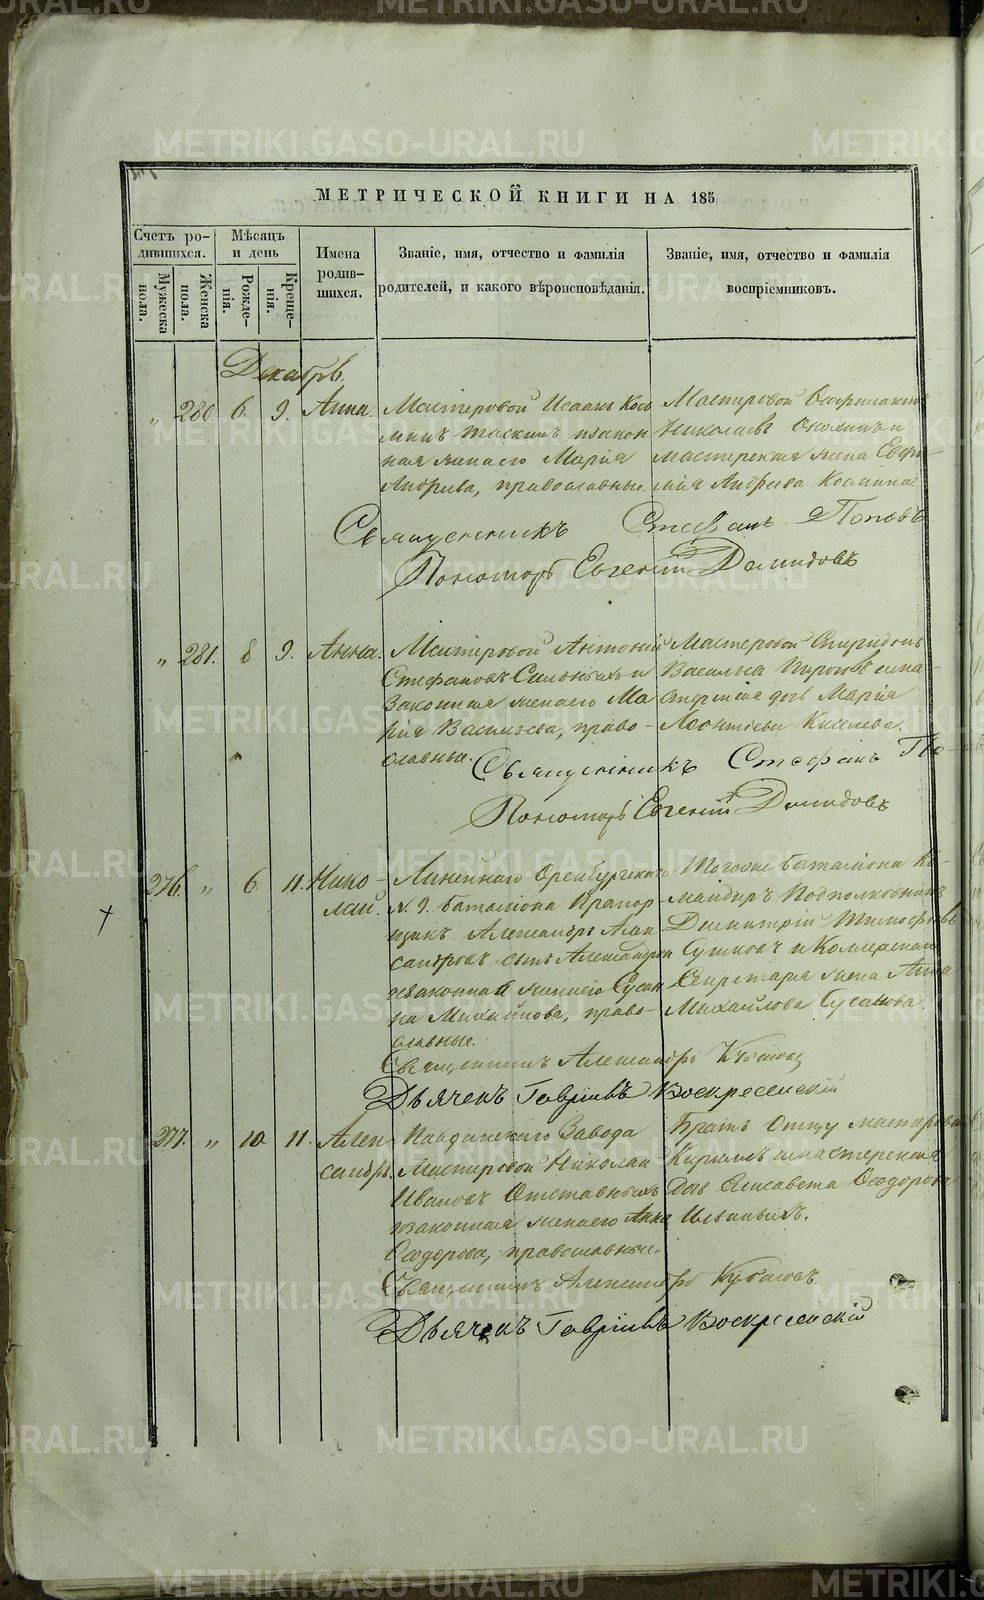 МЕТРИЧЕСКОЙ КНИГИ НА 185
Счетъ ро-
дившихся.
Мужеска
пола.
Женска
пола.
Мѣсяцъ
и день
Рожде-
нія.
Креще-
нія.
Имена
родив-
шихся.
Званіе, имя, отчество и фамилія
родителей, и какого вѣроисповѣданія.
Званіе, имя, отчество и фамилія
воспріемниковъ.
Декабрь.
„ 280. 6. 9. Анна.
Мастеровой Исаакъ Козь
законная жена его Марія
Андреева, православные.
Мастеровой
Николаевъ и
мастерская жена Евфи-
мія Андреева
Священникъ Стефанъ Поповъ
Пономарь Евгеній Демидовъ
„ 281. 8 9. Анна.
Мастеровой Антоній
Стефановъ и
законная жена его Ма
рія Васильева, право-
славные.
Мастеровой Спиридонъ
Васильевъ и ма-
стерская дочь Марія
Леонтіева Киселева.
Священникъ Стефанъ По-
Пономарь Евгеній Демидовъ
276. „ 6 11. Нико-
лай.
Линейнаго Оренбургскаго
№ 9. баталіона Прапор
щикъ Александръ Алек
сандровъ сынъ
и законная жена его Сусан
на Михайлова, право-
славные.
Тогоже баталіона Ко-
мандиръ Подполковникъ
Димитрій Тимофѣевъ
Сушковъ и Коллежскаго
Секретаря жена Анна
Михайлова Сусанова
Священникъ Александръ
Дьячекъ Гавріилъ Воскресенскій
277. „ 10 11. Алек
сандръ.
Павдинскаго Завода
Мастеровой Николай
Ивановъ Отставныхъ
и законная жена его Анна
Ѳеодорова, православные.
Братъ Отцу мастеровой
Кириллъ и мастерская
Дочь Елисавета Ѳеодорова
Ильиныхъ.
Священникъ Александръ
Дьячекъ Гавріилъ Воскресенскій
METRIKI.GASO-URAL.RU